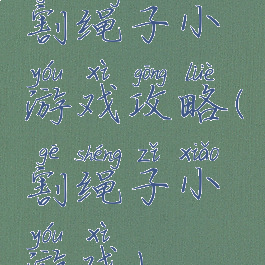 割绳子小
yóu xì gōng lüè
游戏攻略(
gē shéng zi xiǎo
割绳子小
yóu xì
游戏)